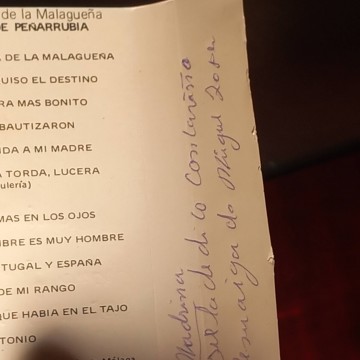 de la Malagueña
E PEÑARRUBIA
DE LA MALAGUEÑA
UISO EL DESTINO
RA MAS BONITO
BAUTIZARON
DA A MI MADRE
TORDA, LUCERA
ulería)
MAS EN LOS OJOS
BRE ES MUY HOMBRE
TUGAL Y ESPAÑA
DE MI RANGO
QUE HABIA EN EL TAJO
TONIO
Madrina
dedico con cariño
Miguel